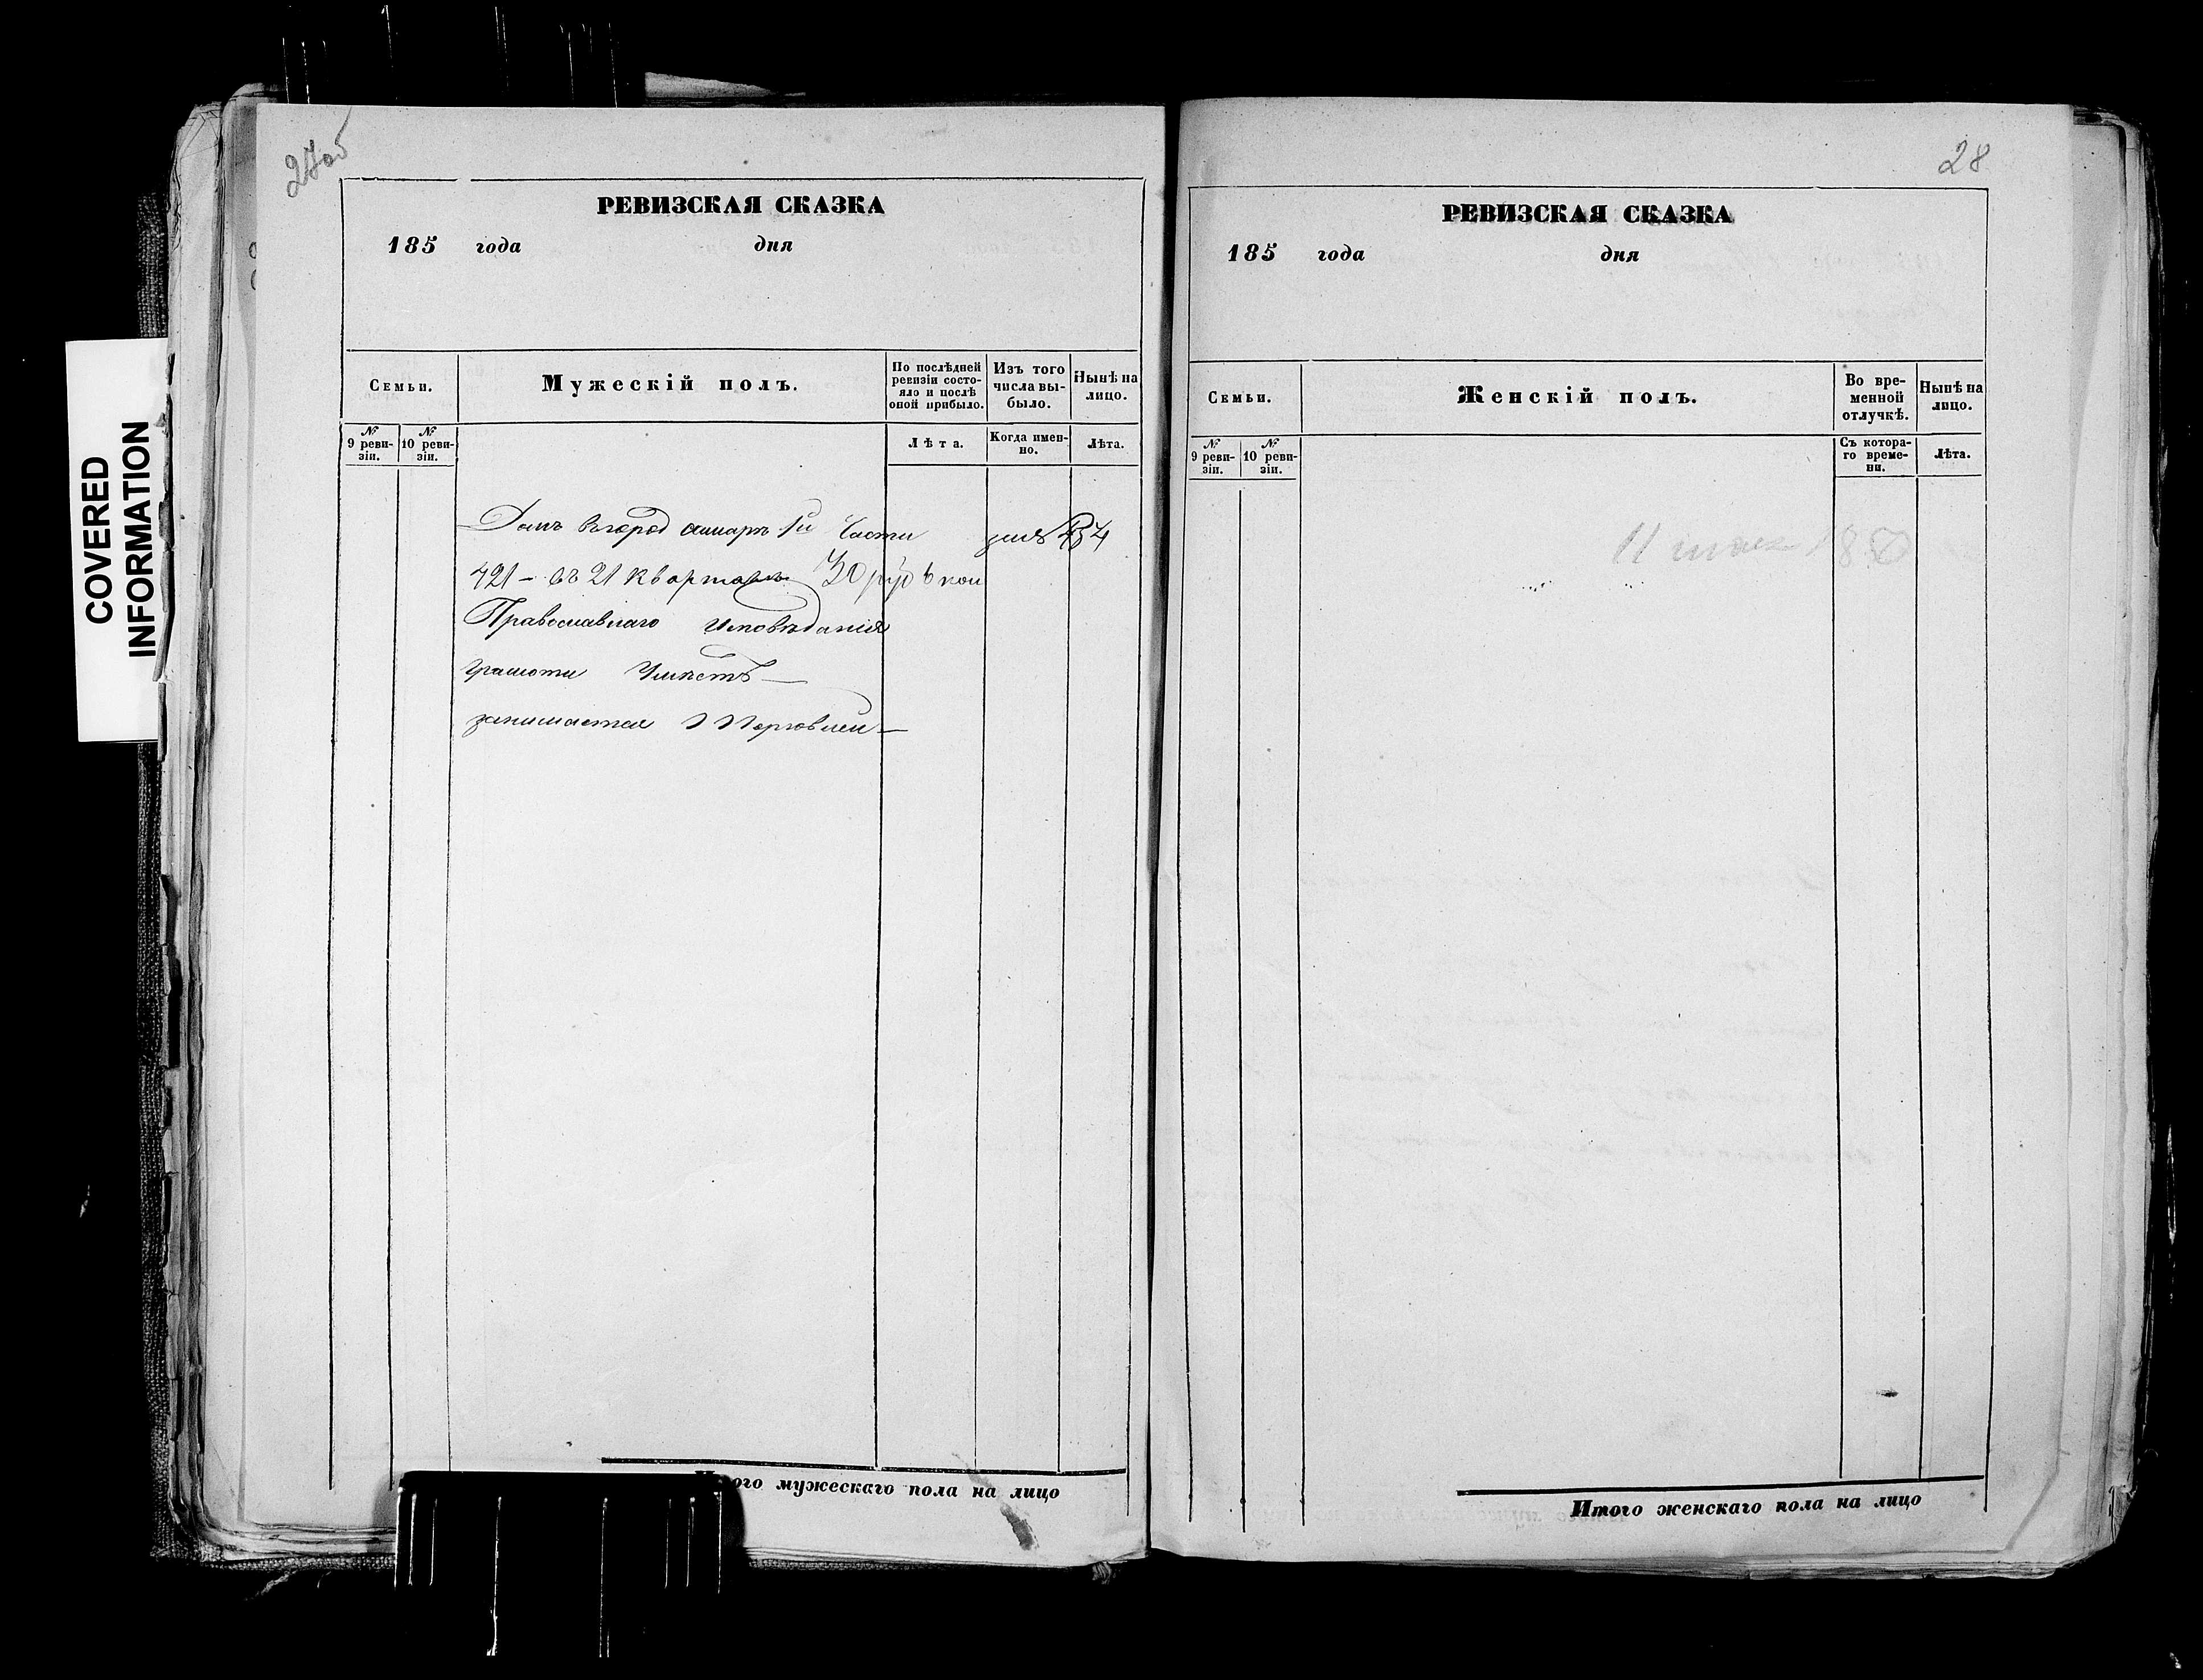 COVERED
INFORMATION
27об
РЕВИЗСКАЯ СКАЗКА
185 года дня
Семьи.
Мужескій полъ.
По послѣдней ревизіи состо-
яло и послѣ оной прибыло.
Изъ того числа вы-
было.
Нынѣ на лицо.
№ 9 реви-
зіи.
№ 10 реви-
зіи.
Лѣта.
Когда имен-
но.
Лѣта.
Домъ въ город 1й Части
421 – въ 21 кварталъ 30 руб
Православнаго исповѣданія
грамоти Умѣетъ —
занимается Торговлей —
Итого мужескаго пола на лицо
28
РЕВИЗСКАЯ СКАЗКА
185 года дня
Семьи.
Женскій полъ.
Во вре-
менной
отлучкѣ.
Нынѣ на
лицо.
№ 9 реви-
зіи.
№ 10 реви-
зіи.
Съ котора-
го време-
ни.
Лѣта.
Итого женскаго пола на лицо